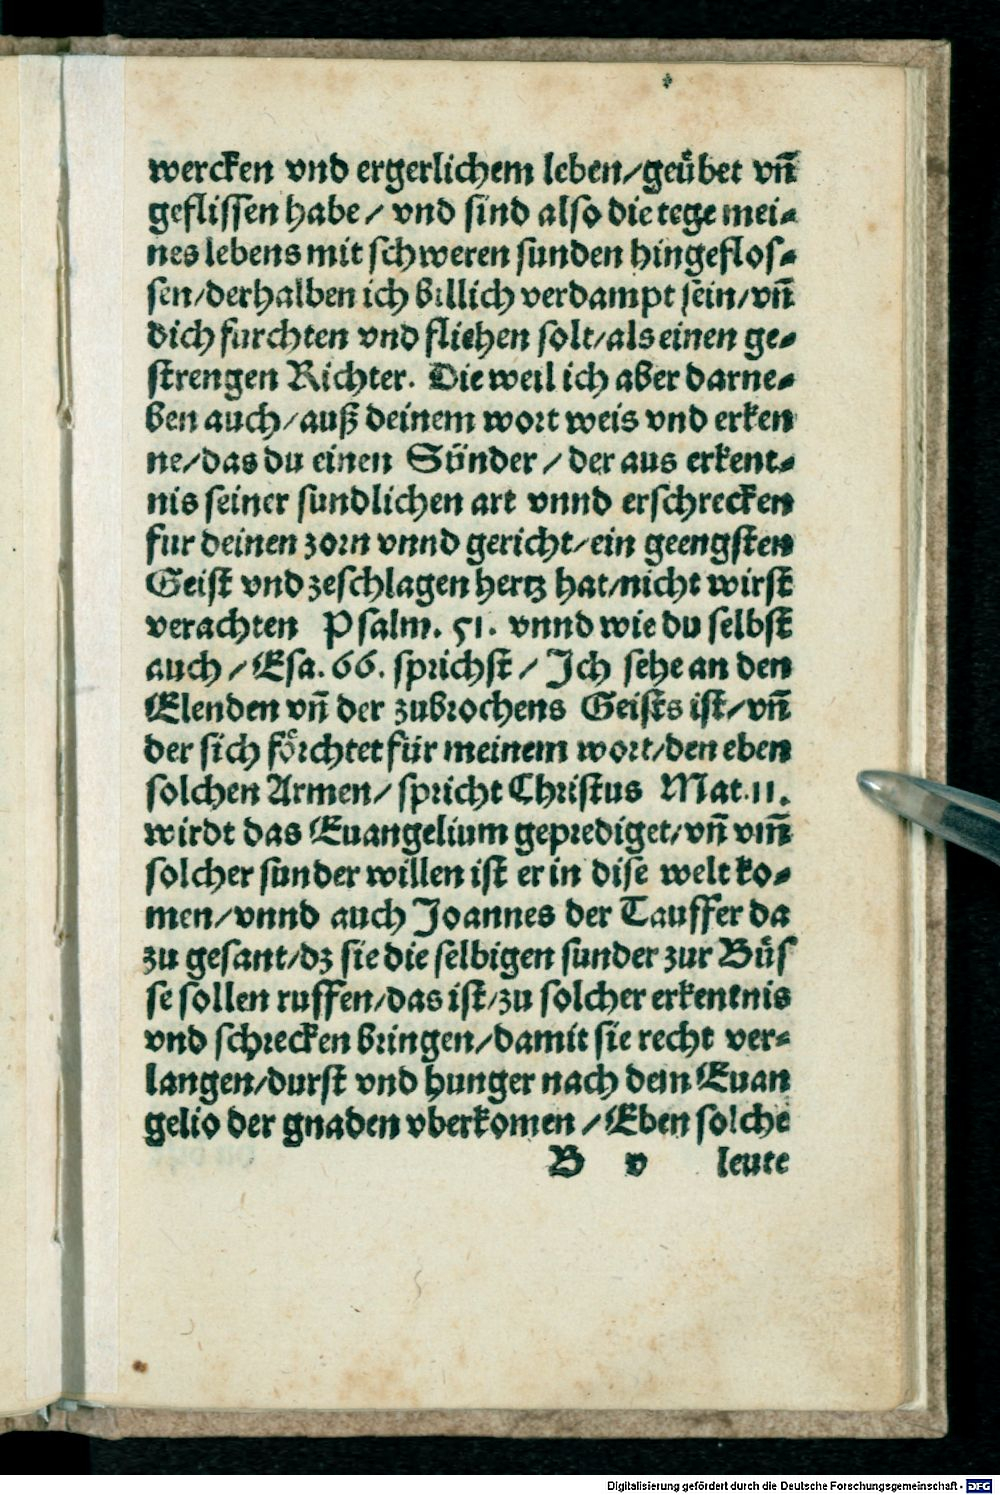 wercken vnd ergerlichem leben/geuͤbet vñ
geflissen habe/ vnd sind also die tege mei⸗
nes lebens mit schweren sunden hingeflos⸗
sen/derhalben ich billich verdampt sein/vñ
dich furchten vnd fliehen solt/als einen ge⸗
strengen Richter. Die weil ich aber darne⸗
ben auch/auß deinem wort weis vnd erken
ne/das du einen Sünder/ der aus erkent⸗
nis seiner sundlichen art vnnd erschrecken
fur deinen zorn vnnd gericht/ein geengsten
Geist vnd zeschlagen hertz hat/nicht wirst
verachten Psalm. 51. vnnd wie du selbst
auch/ Esa. 66. sprichst/ Ich sehe an den
Elenden vñ der zubrochens Geists ist/vñ
der sich foͤrchtet für meinem wort/den eben
solchen Armen/ spricht Christus Mat.11.
wirdt das Euangelium geprediget/vñ vm̃
solcher sunder willen ist er in dise welt ko⸗
men/vnnd auch Joannes der Tauffer da
zu gesant/dz sie die selbigen sunder zur Buͤs
se sollen ruffen/das ist/zu solcher erkentnis
vnd schrecken bringen/damit sie recht ver⸗
langen/durst vnd hunger nach dem Euan
gelio der gnaden vberkomen/ Eben solche
B v leute
Digitalisierung gefördert durch die Deutsche Forschungsgemeinschaft - DFG